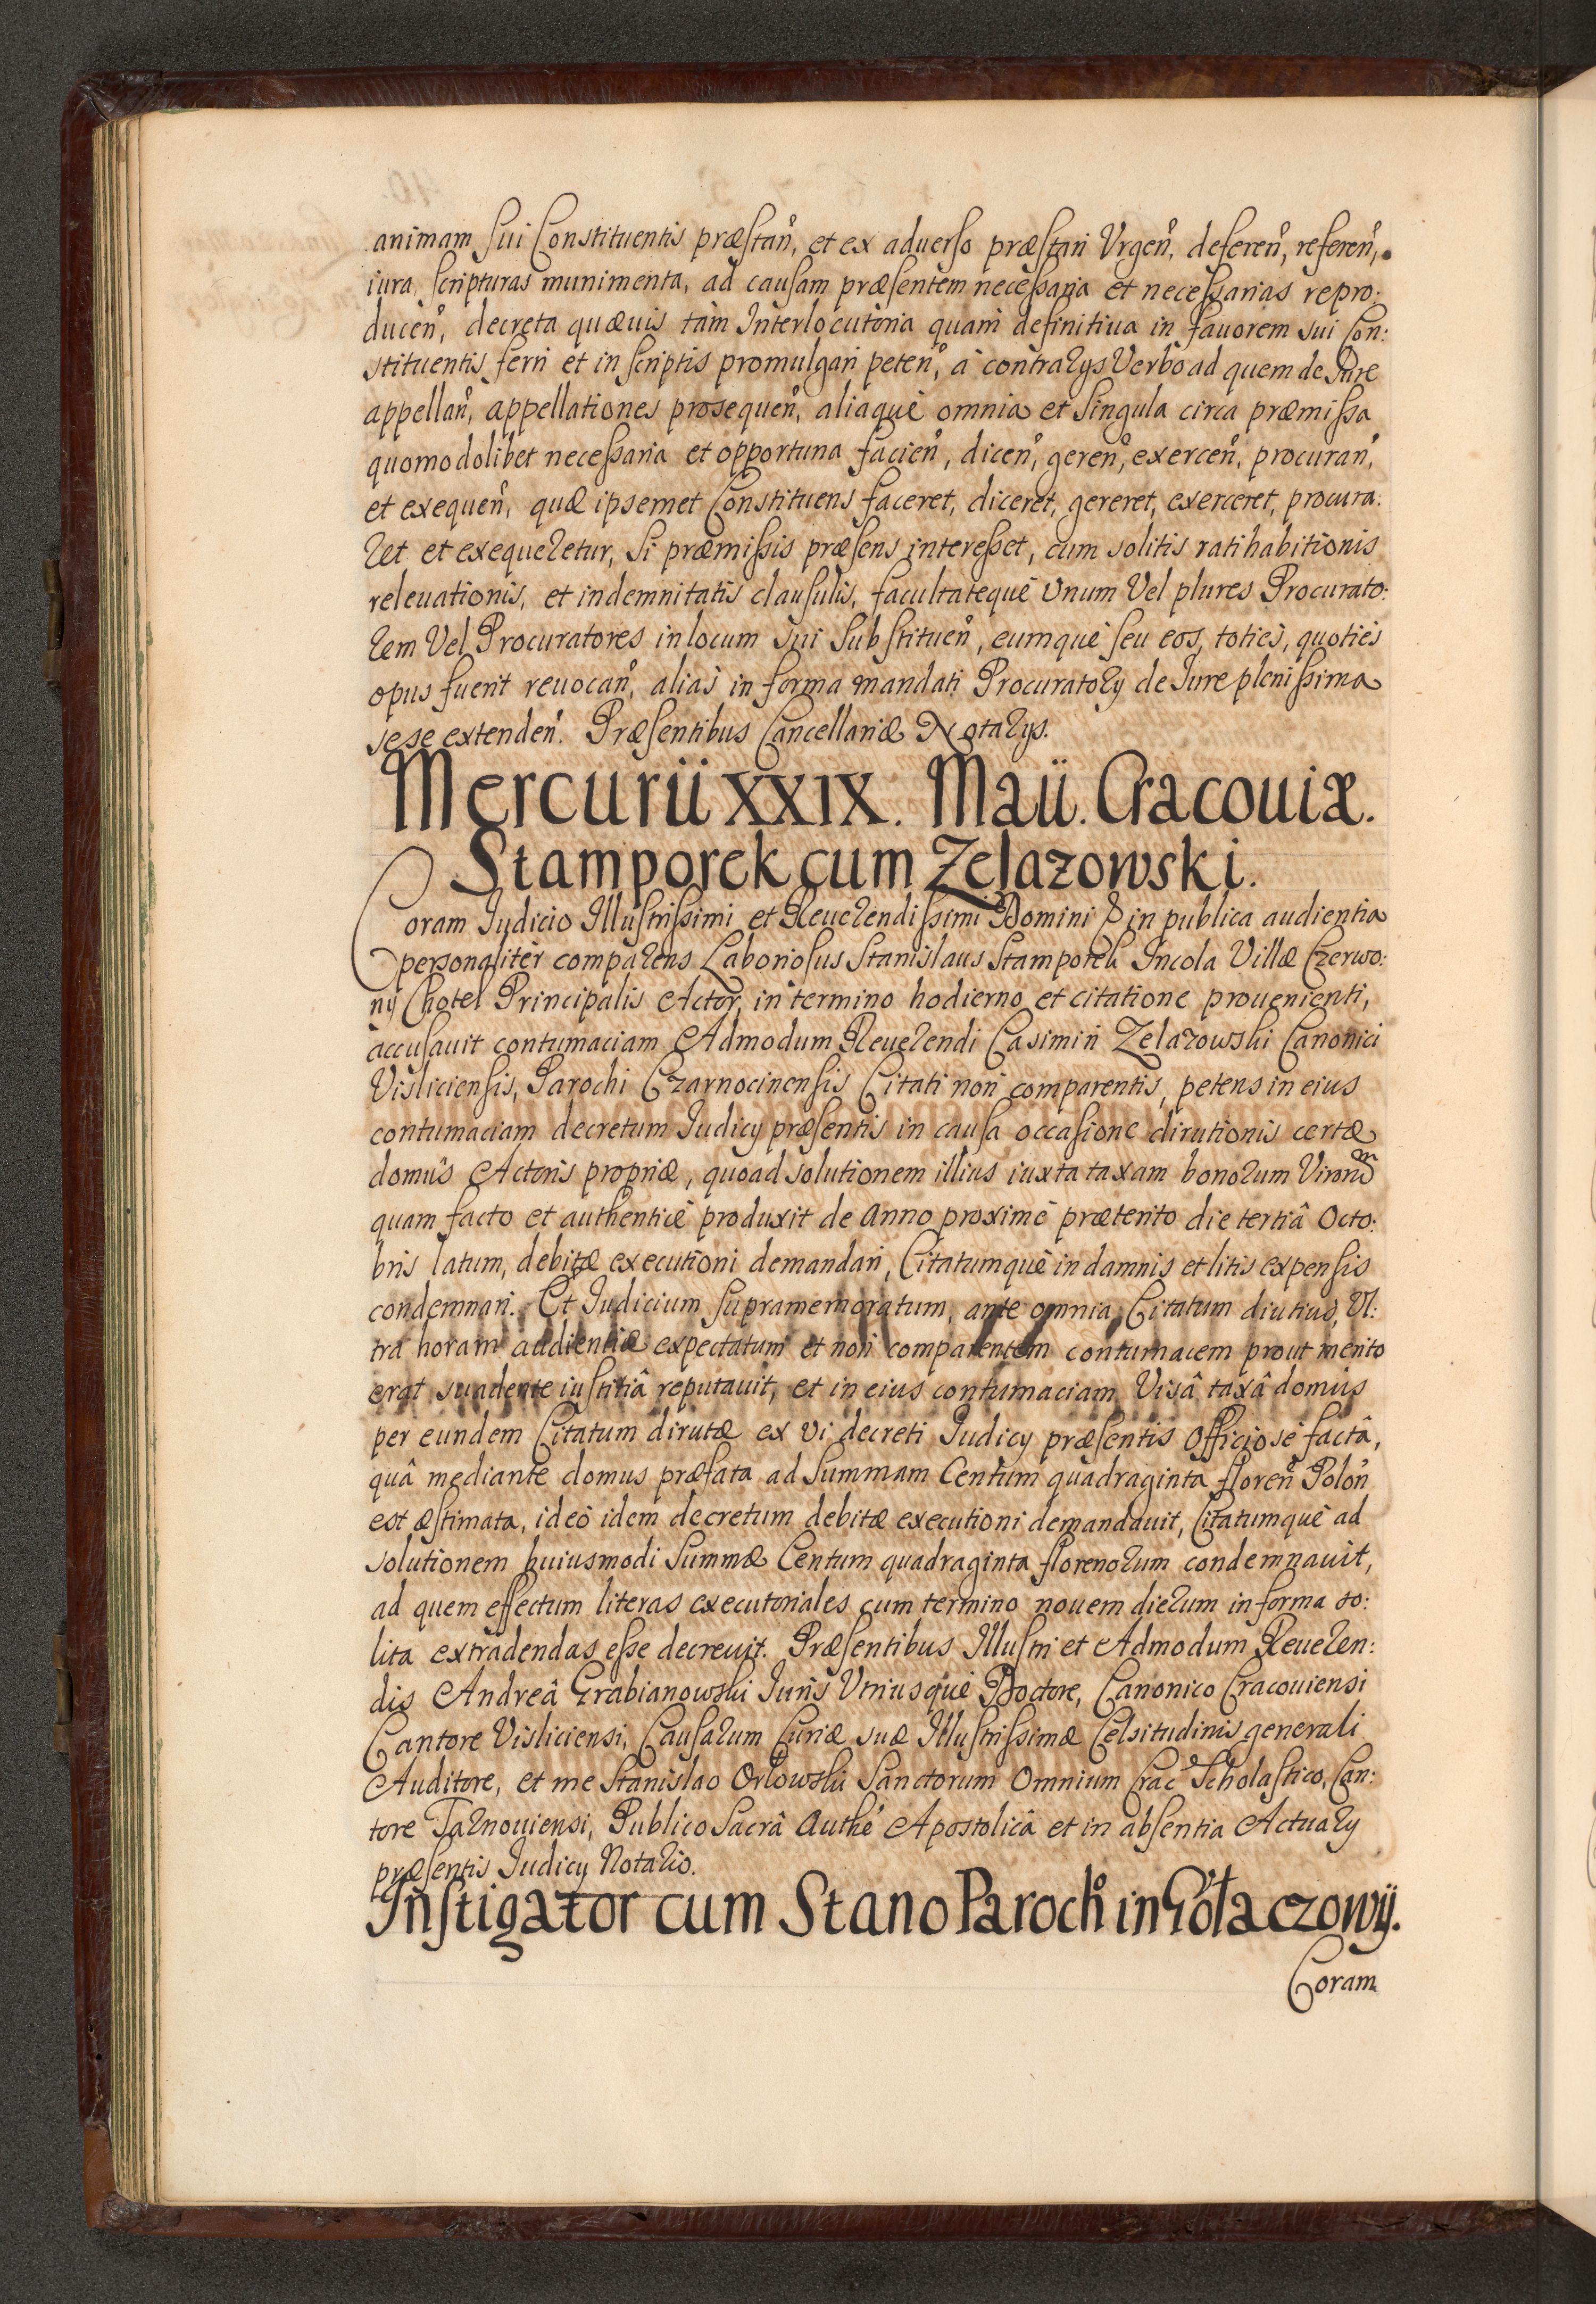 animam sui Constituentis præstan̄, et ex aduerso præstari Urgen̄, deferen̄, referen̄,
iura, scripturas munimenta, ad causam præsentem necessaria et necessarias repro:
ducen̄, decreta quæuis tàm Interlocutoria quam definitiua in fauorem sui Con:
stituentis ferri et in scriptis promulgari peten̄, à contrarys Verbo ad quem de Jure
appellan̄, appellationes prosequen̄, aliaquè omnia et singula circa præmissa
quomodolibet necessaria et opportuna facien̄, dicen̄, geren̄, exercen̄, procuran̄,
et exequen̄, quæ ipsemet Constituens faceret, diceret, gereret, exerceret, procura:
ret et exequeretur, si præmissis præsens interesset, cum solitis ratihabitionis
releuationis, et indemnitatis clausulis, facultatequè Unum Vel plures Procurato:
rem Vel Procuratores in locum sui substituen̄, eumquè seu eos, totiès, quotiès
opus fuerit reuocan̄, aliàs in forma mandati Procuratory de Jure plenissima
sese extenden̄. Præsentibus Cancellariæ Notarys.
Mercurii XXIX. Maii. Cracouiæ.
Stamporek cum Zelazowski.
Coram Judicio Illustrissimi et Reuerendissimi Domini & in publica audientia
personalitèr comparens Laboriosus Stanislaus Stamporek Incola Villæ Czerwo:
ny Chotel Principalis Actor, in termino hodierno et citatione prouenienti,
accusauit contumaciam Admodum Reuerendi Casimiri Zelazowski Canonici
Visliciensis, Parochi Czarnocinensis Citati non comparentis, petens in eius
contumaciam decretum Judicy præsentis in causa occasione dirutionis certæ
domûs Actoris propriæ, quoad solutionem illius iuxta taxam bonorum Viror̄um
quam facto et authenticè produxit de Anno proximè præterito die tertiâ Octo:
bris latum, debitæ executioni demandari, Citatumquè in damnis et litis expensis
condemnari. Et Judicium supramemoratum, ante omnia, Citatum diutius, Ul:
tra horam audientiæ expectatum et non comparentem contumacem prout merito
erat suadente iustitiâ reputauit, et in eius contumaciam, Visâ taxâ domus
per eundem Citatum dirutæ ex vi decreti Judicy præsentis Officiosè factâ,
quâ mediante domus præfata ad summam Centum quadraginta floren̄ Polon̄
est æstimata, ideò idem decretum debitæ executioni demandauit, Citatumquè ad
solutionem huiusmodi summæ Centum quadraginta florenorum condemnauit,
ad quem effectum literas executoriales cum termino nouem dierum in forma so:
lita extradendas esse decreuit. Præsentibus Illustri et Admodum Reueren:
dis Andreâ Grabianowski Juris Utriusquè Doctore, Canonico Cracouiensi
Cantore Visliciensi, Causarum Curiæ suæ Illustrissimæ Celsitudinis generali
Auditore, et me Stanislao Orłowski Sanctorum Omnium Crac̄ Scholastico, Can:
tore Tarnouiensi, Publico Sacrâ Authē Apostolicâ et in absentia Actuary
præsentis Judicy Notario.
Instigator cum Stano Paroch̄ in Gołaczowy.
Coram